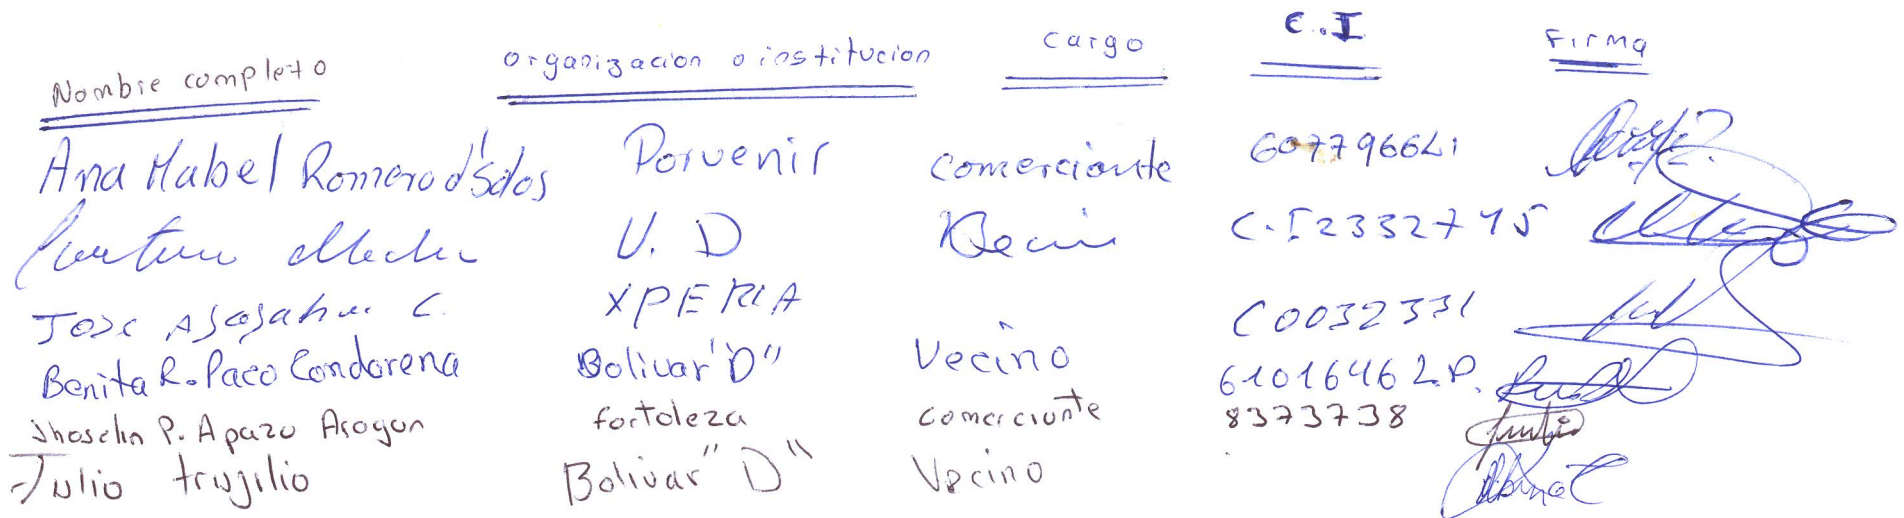 Nombre completo organizacion o institucion cargo C.I Firma
Ana Mabel Romero d' Salas Porvenir comerciante 6077966L1
V. D C.I 2332715
Jose C. XPERIA C0032331
Benita R. Paco Condorena Bolivar "D" Vecino 6101646 L.P.
Jhoselin P. Apaza Aragon fortaleza comerciante 8373738
Julio trujilio Bolivar "D" Vecino